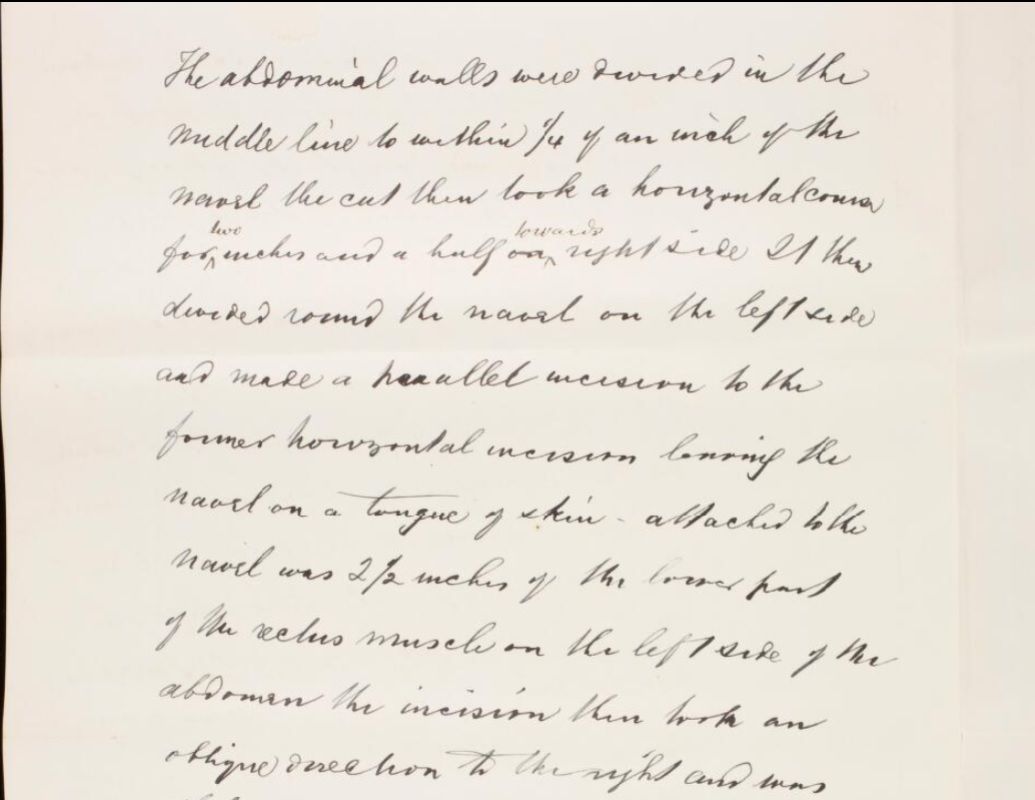 The abdominal walls were divided in the
middle line to within 1/4 of an inch of the
navel the cut then took a horizontal course
two towards
for inches and a half on right side It then
divided round the navel on the left side
and made a parallel incision to the
former horizontal incision leaving the
navel on a tongue of skin - attached to the
navel was 2 1/2 inches of the lower part
of the rectus muscle on the left side of the
abdomen the incision then took an
oblique direction to the right and was